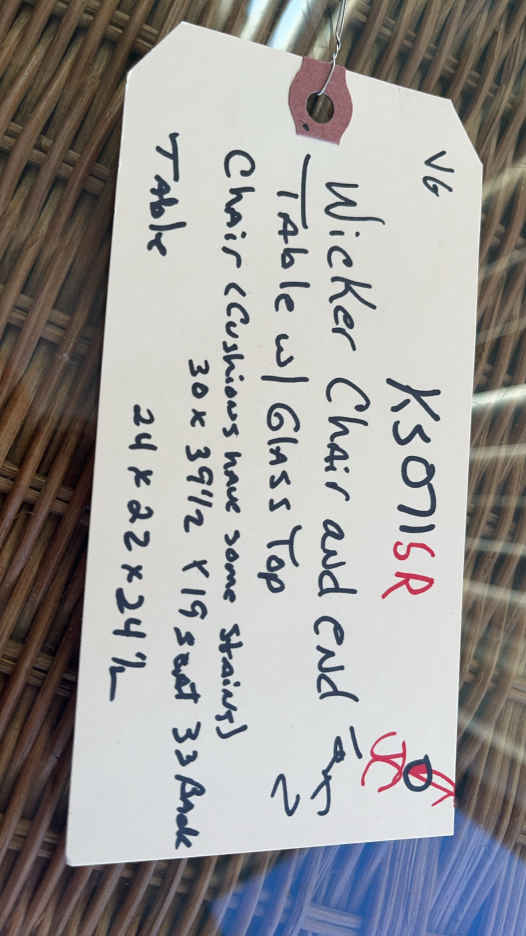 VG
KS071SR
Wicker Chair and end
Table w/ Glass Top
Chair (Cushions have some stains)
30 x 39 1/2 x 19 seat 33 Back
Table
24 x 22 x 24 1/2